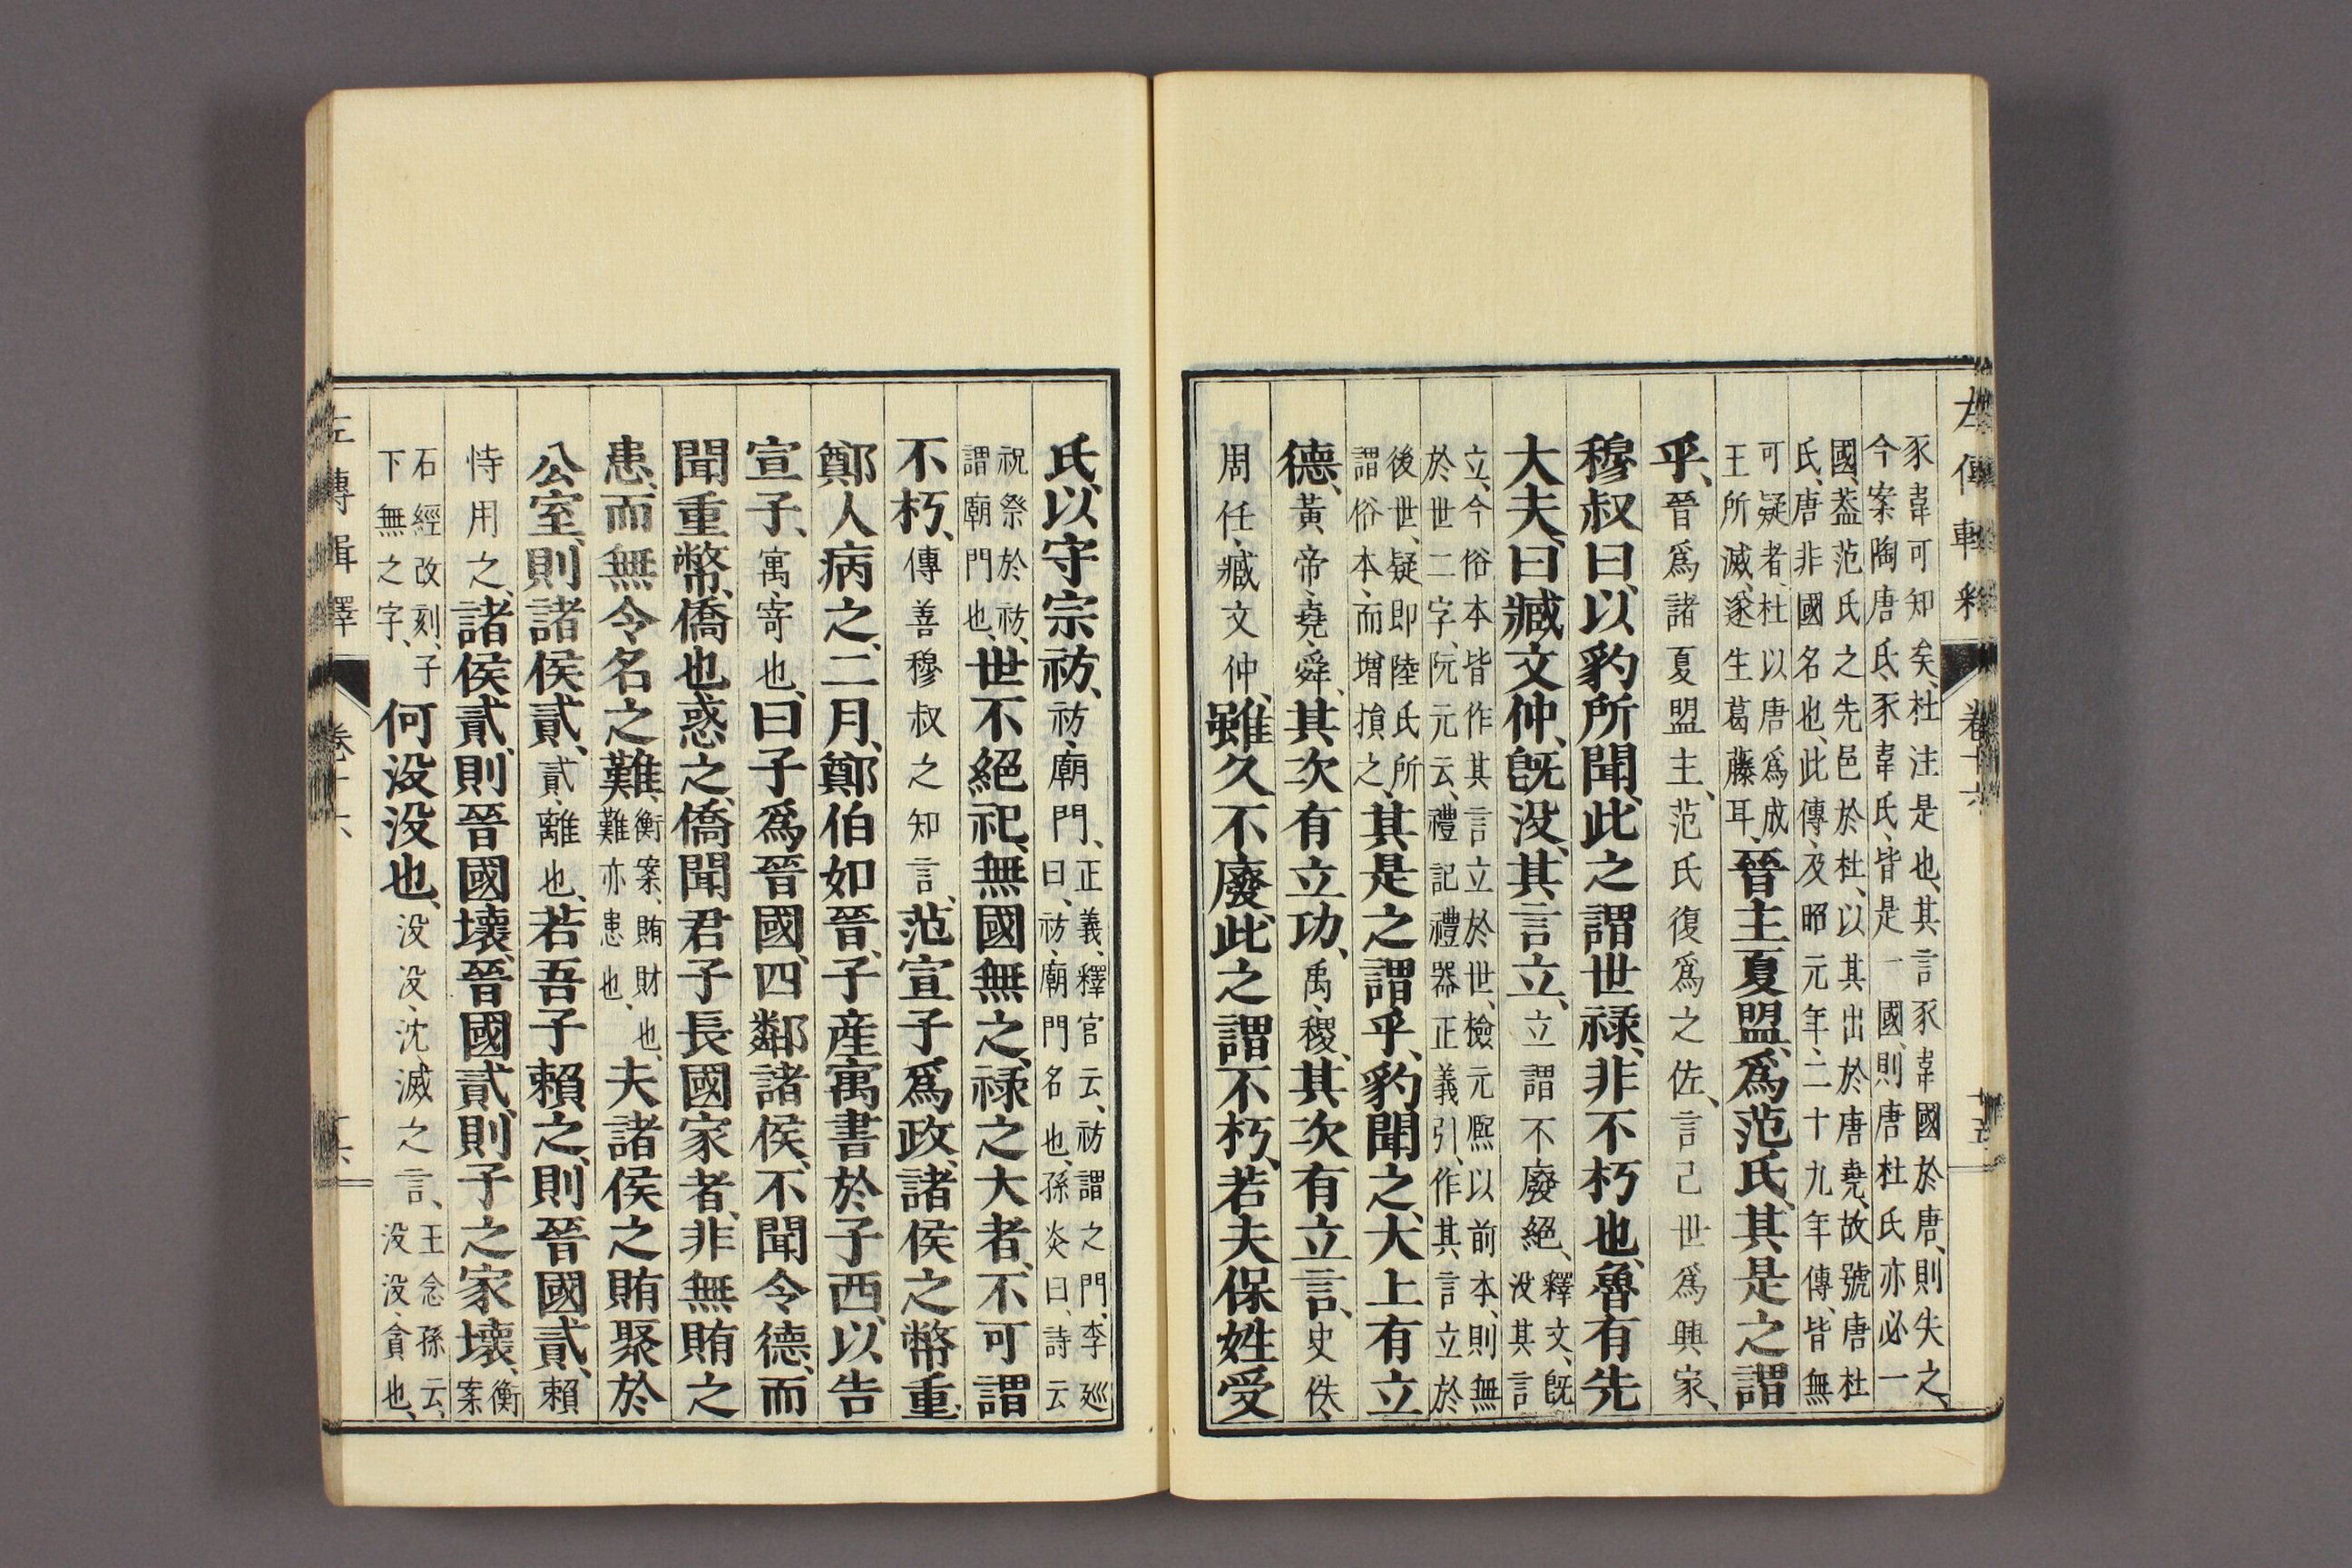 左傳輯釋 卷十六 十五
豕韋可知矣、杜注是也、其言豕韋國於唐、則失之、
今案陶唐氏、豕韋氏、皆是一國、則唐杜氏亦必一
國、蓋范氏之先邑於杜、以其出於唐堯、故號唐杜
氏、唐非國名也、此傳、及昭元年、二十九年傳、皆無
可疑者、杜以唐爲成
王所滅、遂生葛藤耳、晉主夏盟、爲范氏、其是之謂
乎、晉爲諸夏盟主、范氏復爲之佐、言己世爲興家、
穆叔曰、以豹所聞、此之謂世祿、非不朽也、魯有先
大夫、曰臧文仲、旣没、其言立、立謂不廢絕、釋文、旣
没其言
立、今俗本皆作其言立於世、檢元熈以前本、則無
於世二字、阮元云、禮記禮器正義引、作其言立於
後世、疑即陸氏所
謂俗本、而增損之、其是之謂乎、豹聞之、大上有立
德、黃帝、堯、舜、其次有立功、禹、稷、其次有立言、史佚、
周任、臧文仲、雖久不廢、此之謂不朽、若夫保姓受
氏、以守宗祊、祊、廟門、正義、釋宮云、祊謂之門、李廵
曰、祊、廟門名也、孫炎曰、詩云
祝祭於祊、
謂廟門也、世不絕祀、無國無之、祿之大者、不可謂
不朽、傳善穆叔之知言、范宣子爲政、諸侯之幣重、
鄭人病之、二月、鄭伯如晉、子產寓書於子西、以告
宣子、寓、寄也、曰、子爲晉國、四鄰諸侯、不聞令德、而
聞重幣、僑也惑之、僑聞君子長國家者、非無賄之
患、而無令名之難、衡案、賄、財也、
難亦患也、夫諸侯之賄聚於
公室、則諸侯貳、貳、離也、若吾子賴之、則晉國貳、賴
恃用之、諸侯貳、則晉國壞、晉國貳、則子之家壞、衡
案
石經改刻、子
下無之字、何没没也、没没、沈滅之言、王念孫云、
没没、貪也、
左傳輯釋 卷十六 十六